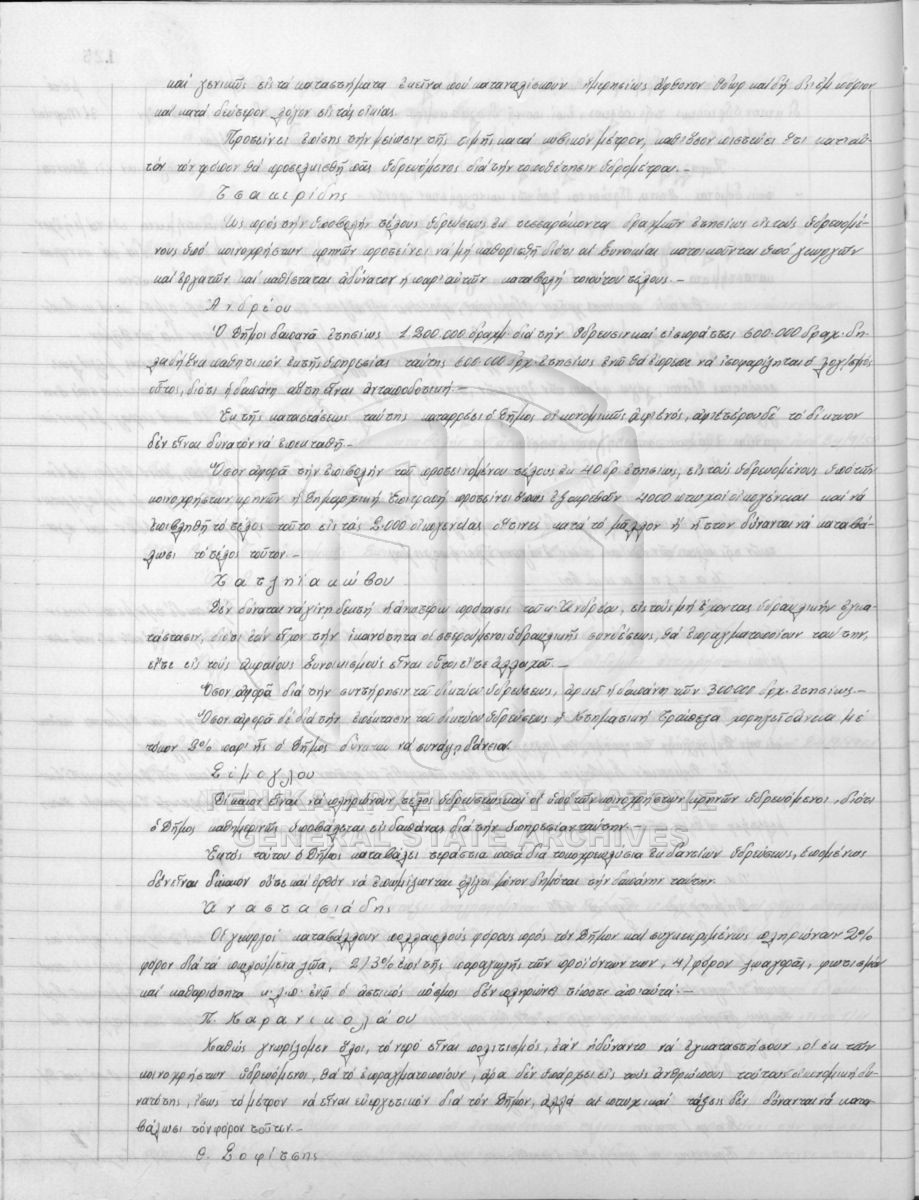 καί γενικῶς εἰς τά καταστήματα ἐκεῖνα πού καταναλίσκουν ἡμερησίως ἄφθονον ὕδωρ καί δή δι' ἐμπόριον
καί κατά δεύτερον λόγον εἰς τάς οἰκίας.
Προτείνει ἐπίσης τήν μείωσιν τῆς τιμῆς κατά κυβικόν μέτρον, καθ' ὅσον πιστεύει ὅτι κατ' αὐ-
τόν τόν τρόπον θά προσελκυσθῇ πᾶς ὑδρευόμενος διά τήν τοποθέτησιν ὑδρομέτρου.-
Τσακιρίδης
Ὡς πρός τήν ὑποβολήν τέλους ὑδρεύσεως ἐκ τεσσαράκοντα δραχμῶν ἐτησίως εἰς τούς ὑδρευομέ-
νους ὑπό κοινοχρήστων κρηνῶν προτείνει νά μή καθορισθῇ διότι οἱ Συνοικίαι κατοικοῦνται ὑπό γεωργῶν
καί ἐργατῶν καί καθίσταται ἀδύνατον ἡ παρ' αὐτῶν καταβολή τοιούτου τέλους.-
Ἀνδρέου
Ὁ Δῆμος δαπανᾶ ἐτησίως 1.200.000 δραχμ. διά τήν ὕδρευσιν καί εἰσπράττει 600.000 δραχ. δη-
λαδή ἕνα παθητικόν ἐκ τῆς ὑπηρεσίας ταύτης 600.000 δρχ. ἐτησίως ἐνῶ θά ἔπρεπε νά ἰσοφαρίζηται ὁ λογ/σμός
οὗτος, διότι ἡ δαπάνη αὕτη εἶναι ἀνταποδοτική.-
Ἐκ τῆς καταστάσεως ταύτης καταρρέει ὁ Δῆμος οἰκονομικῶς ἀφ' ἑνός, ἀφ' ἑτέρου δέ τό δίκτυον
δέν εἶναι δυνατόν νά ἐπεκταθῇ.-
Ὅσον ἀφορᾶ τήν ἐπιβολήν τοῦ προτεινομένου τέλους ἐκ 40 δρ. ἐτησίως, εἰς τούς ὑδρευομένους ὑπό τῶν
κοινοχρήστων κρηνῶν ἡ Δημαρχική Ἐπιτροπή προτείνει ὅπως ἐξαιρεθοῦν 2000 πτωχαί οἰκογένειαι καί νά
ἐπιβληθῇ τό τέλος τοῦτο εἰς τάς 2.000 οἰκογενείας αἵτινες κατά τό μᾶλλον ἤ ἧττον δύνανται νά καταβά-
λωσι τό τέλος τοῦτον.-
Χατζηϊακώβου
Δέν δύναται νά γίνῃ δεκτή ἡ ἀνωτέρω πρότασις τοῦ κ. Ἀνδρέου, εἰς τούς μή ἔχοντας ὑδραυλικήν ἐγκα-
τάστασιν, διότι ἐάν εἶχον τήν ἱκανότητα οἱ στερούμενοι ὑδραυλικῆς συνδέσεως, θά ἐπραγματοποίουν ταύτην,
εἴτε εἰς τούς ἀκραίους Συνοικισμούς εἶναι οὗτοι εἴτε ἀλλαχοῦ.-
Ὅσον ἀφορᾶ διά τήν συντήρησιν τοῦ δικτύου ὑδρεύσεως, ἀρκεῖ ἡ δαπάνη τῶν 300.000 δρχ. ἐτησίως.-
Ὅσον ἀφορᾶ δέ διά τήν ἐπέκτασιν τοῦ δικτύου ὑδρεύσεως ἡ Κτηματική Τράπεζα χορηγεῖ δάνεια μέ
τόκον 2% παρ' ἧς ὁ Δῆμος δύναται νά συνάψῃ δάνεια.
Σίμογλου
Δίκαιον εἶναι νά πληρώνουν τέλος ὑδρεύσεως καί οἱ ὑπό τῶν κοινοχρήστων κρηνῶν ὑδρευόμενοι, διότι
ὁ Δῆμος καθημερινῶς ὑποβάλεται εἰς δαπάνας διά τήν ὑπηρεσίαν ταύτην.
ΓΕΝΙΚΑ ΑΡΧΕΙΑ ΤΟΥ ΚΡΑΤΟΥΣ
GENERAL STATE ARCHIVES
Ἐκτός τούτου ὁ Δῆμος καταβάλει τεράστια ποσά διά τοκοχρεωλύσια ἐκ δανείων ὑδρεύσεως, ἑπομένως
δέν εἶναι δίκαιον οὔτε καί ὀρθόν νά ἐπωμίζωνται ὀλίγοι μόνον δημόται τήν δαπάνην ταύτην.
Ἀναστασιάδης
Οἱ γεωργοί καταβάλλουν πολλαπλούς φόρους πρός τόν Δῆμον καί συγκεκριμένως πληρώνουν 2%
φόρον διά τά πωλούμενα ζῶα, 2) 3% ἐπί τῆς παραγωγῆς τῶν προϊόντων των, 4) φόρον ζυγαριᾶς, φωτισμόν
καί καθαριότητα κ.λ.π. ἐνῶ ὁ ἀστικός κόσμος δέν πληρώνει τίποτε ἀπό αὐτά.-
Π. Καρανικολάου
Καθώς γνωρίζομεν ὅλοι, τό νερό εἶναι πολιτισμός, ἐάν ἠδύναντο νά ἐγκαταστήσουν, οἱ ἐκ τῶν
κοινοχρήστων ὑδρευόμενοι, θά τό ἐπραγματοποιοῦν, ἄρα δέν ὑπάρχει εἰς τούς ἀνθρώπους τούτους οἰκονομική δυ-
νατότης, ἴσως τό μέτρον νά εἶναι εὐεργετικόν διά τόν Δῆμον, ἀλλά αἱ πτωχικαί τάξεις δέν δύνανται νά κατα-
βάλωσι τόν φόρον τοῦτον.-
Θ. Σοφίτσης